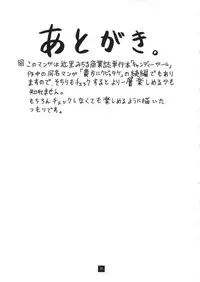 あとがき。
このマンガは近里みちる商業誌単行本「キャンディーガール」
作中の同名マンガ「貴方にクビッタケ」の続編でもあり
ますので、そちらもチェックすると、より一層楽しめるかも
知れません。
もちろんチェックしなくても楽しめるように描いた
つもりです。